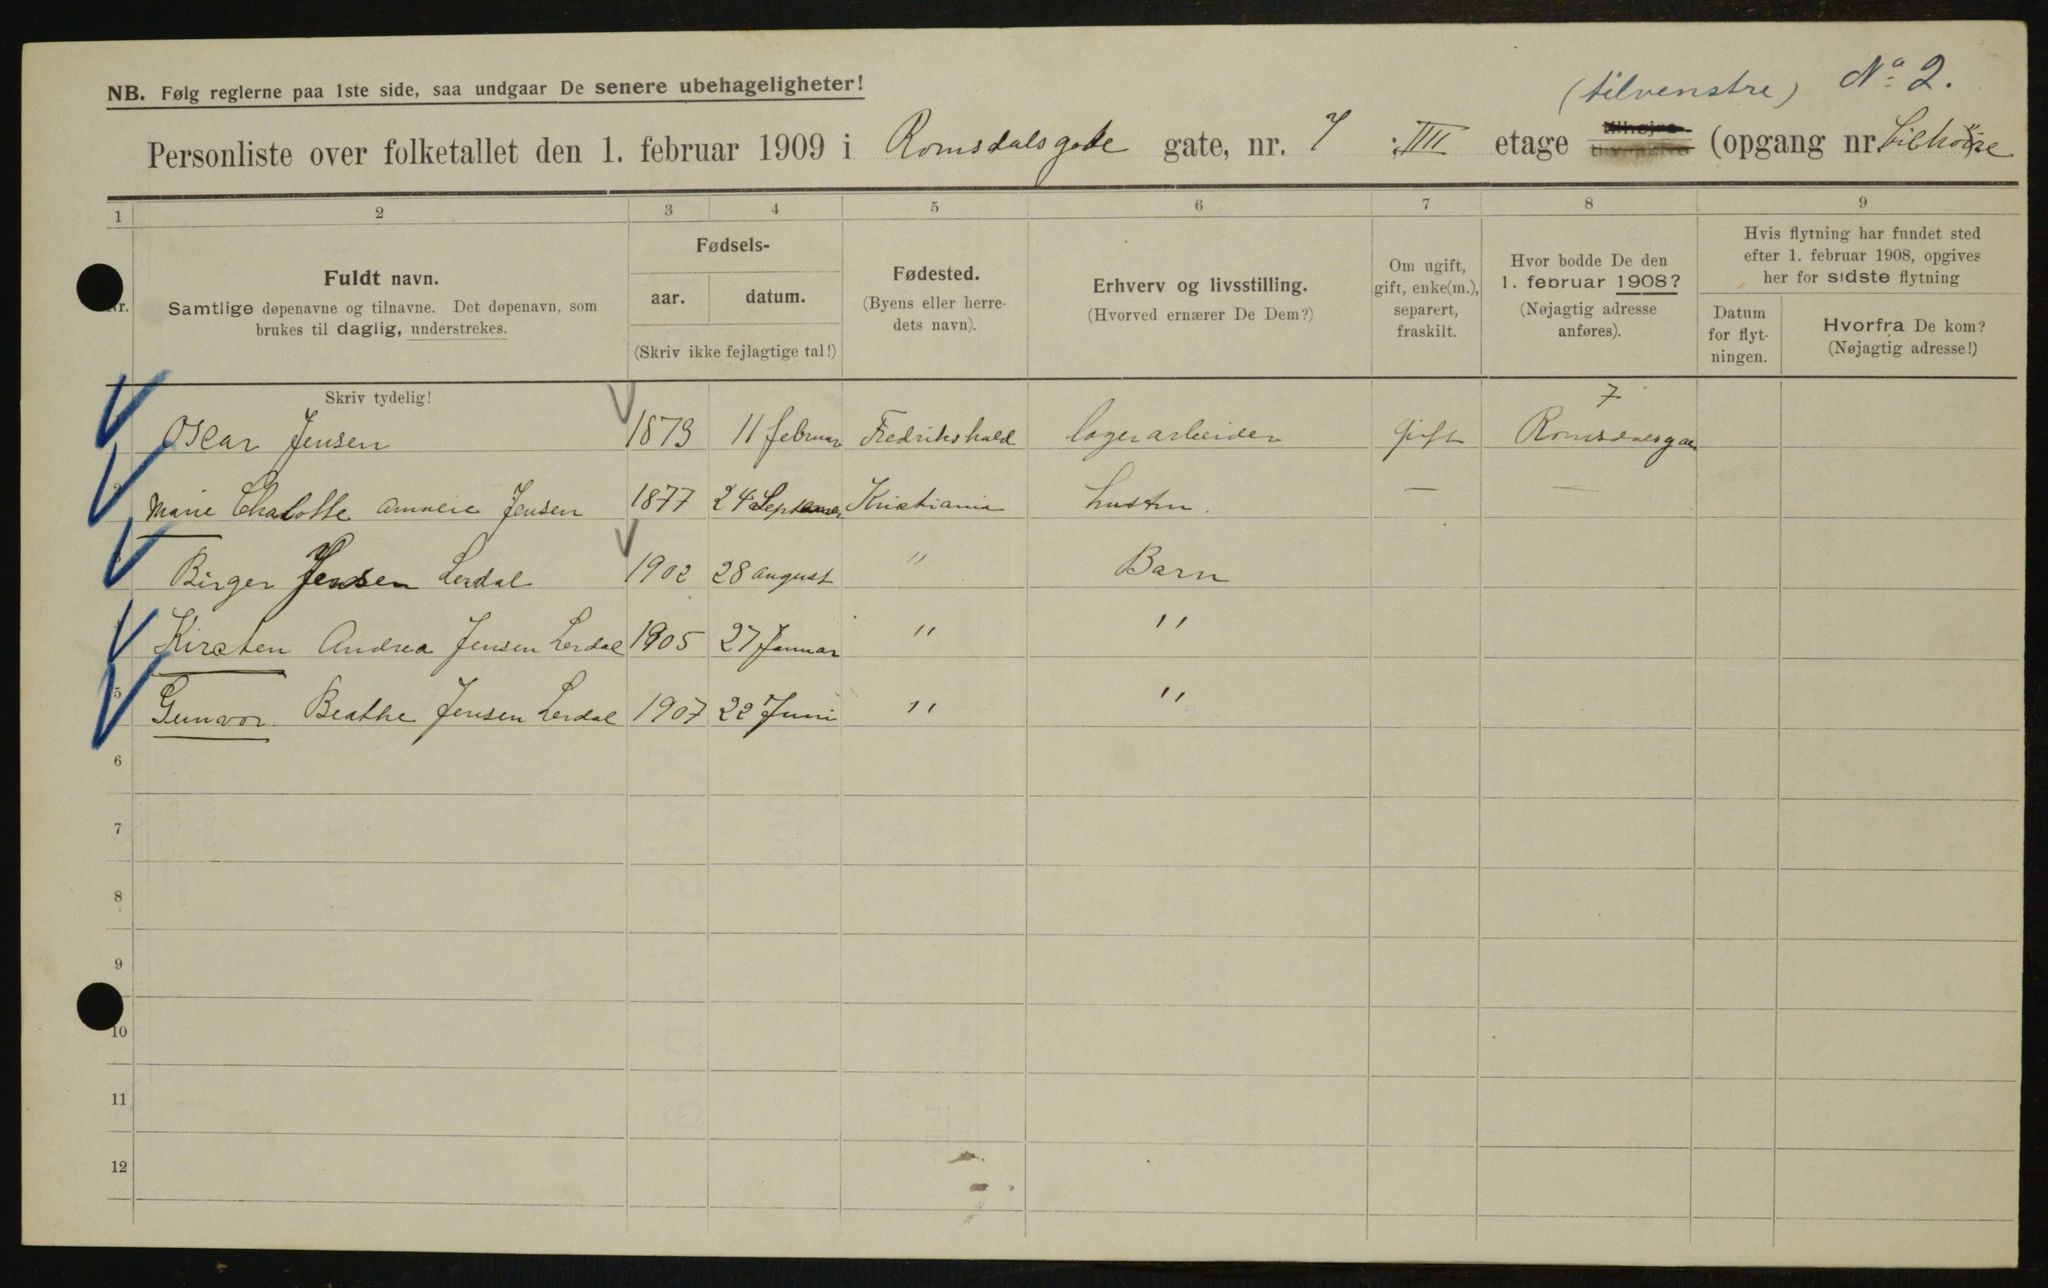 (tilvenstre) No 2.
NB. Følg reglerne paa 1ste side, saa undgaar De senere ubehageligheter!
Personliste over folketallet den 1. februar 1909 i Romsdalsgate gate, nr. 7 : III etage tilhøjre tilvenstre (opgang nr. tilhøire
1 2 3 4 5 6 7 8 9
Nr. Fuldt navn. Samtlige døpenavne og tilnavne. Det døpenavn, som brukes til daglig, understrekes.
Fødsels- aar. datum. (Skriv ikke fejlagtige tal!)
Fødested. (Byens eller herredets navn).
Erhverv og livsstilling. (Hvorved ernærer De Dem?)
Om ugift, gift, enke(m.), separert, fraskilt.
Hvor bodde De den 1. februar 1908? (Nøjagtig adresse anføres).
Hvis flytning har fundet sted efter 1. februar 1908, opgives her for sidste flytning
Datum for flytningen. Hvorfra De kom? (Nøjagtig adresse!)
Skriv tydelig!
Oscar Jensen 1873 11 februar Fredrikshald lagerarbeider gift 7 Romsdalsgae
2 Marie Chalotte Jensen 1877 24 Kristiania hustru — —
Birger Jensen Lerdal 1902 28 august " Barn
4 Kirsten Andrea Jensen Lerdal 1905 27 Januar " "
5 Gunvor Beathe Jensen Lerdal 1907 22 Juni " "
6
7
8
9
10
11
12